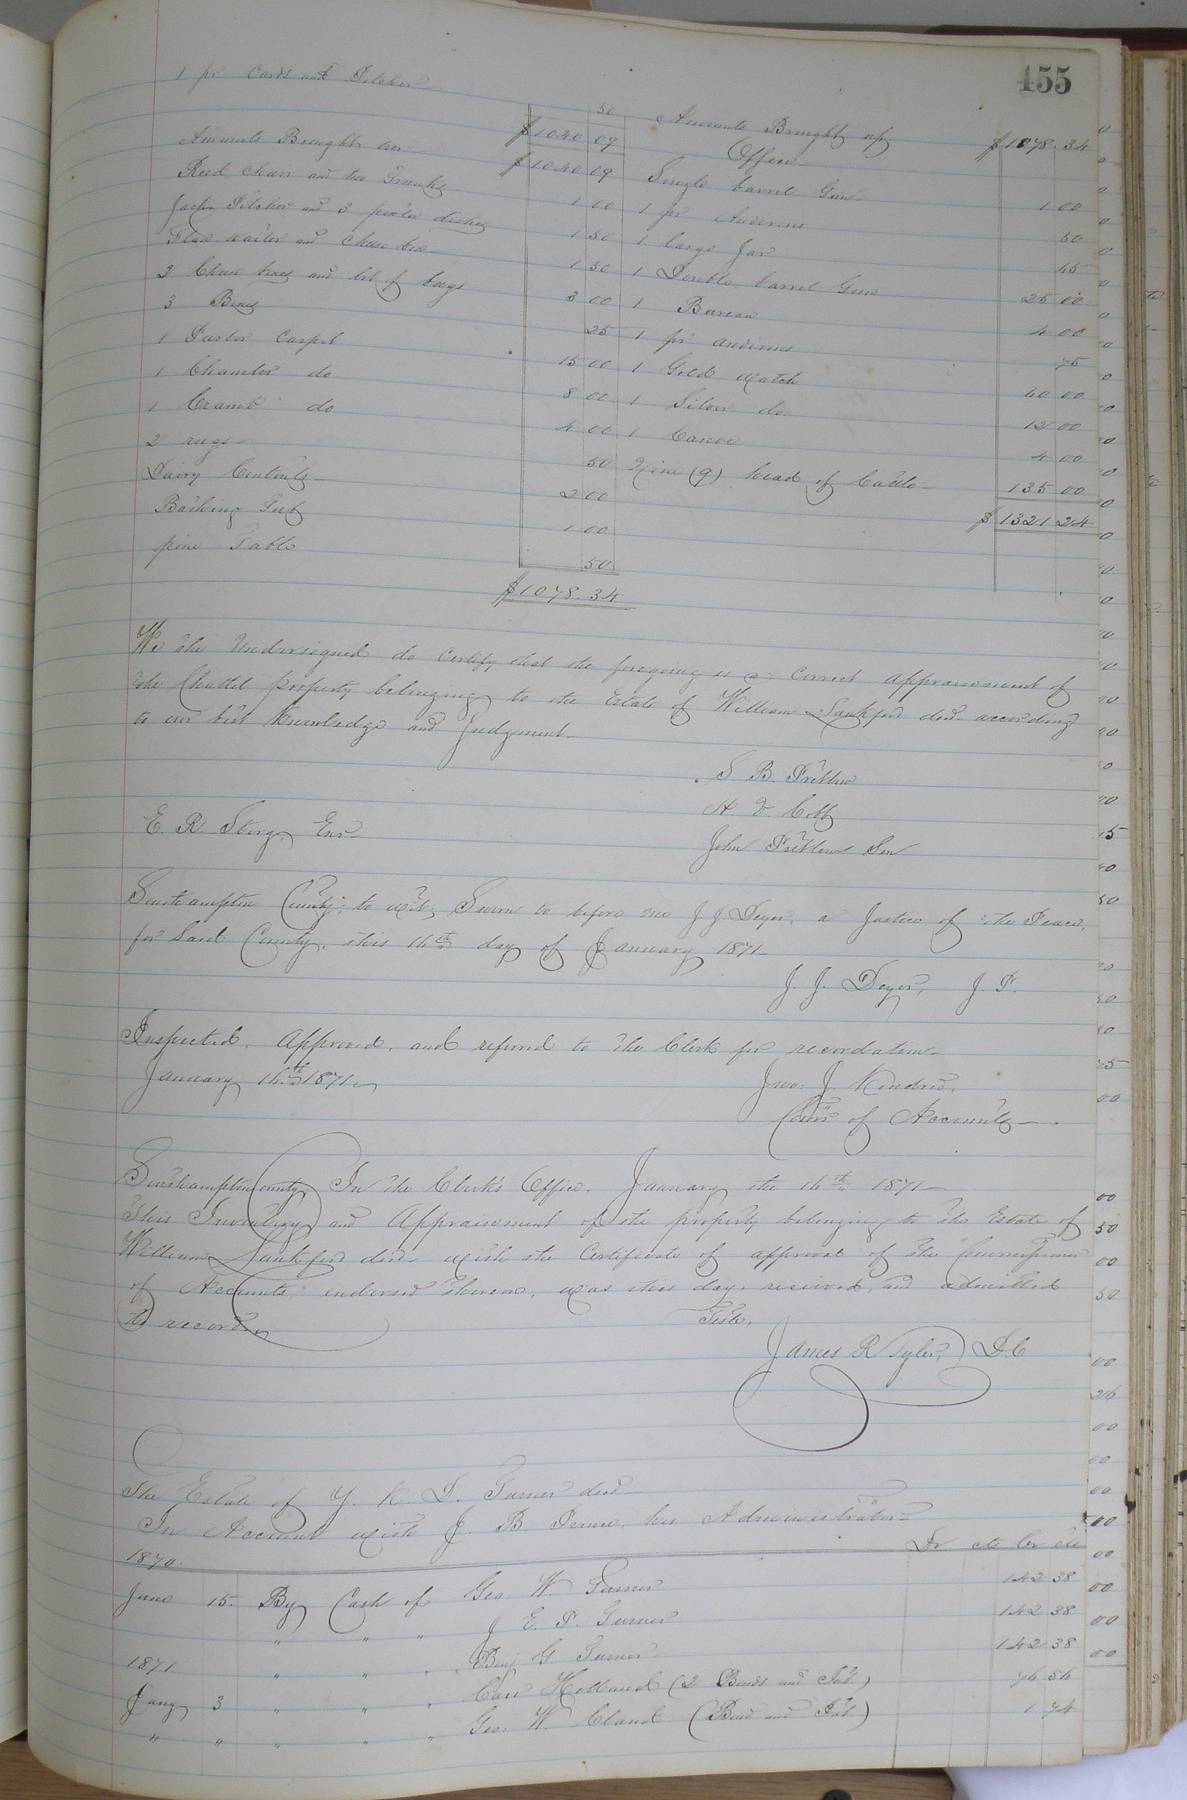 455
1 pr Cards and Pitcher 50
$1040 09
Amounts Brought over $1040.09
Reed Chair and two Trunks 1 00
Pitcher and 3 pewter dishes 1 50
Flax and Cheese box 1 50
2 Chees boxes and lot of bags 3 00
3 Boxes 25
1 Parlor Carpet 15 00
1 Chamber do 8 00
1 do 4 00
2 rugs 50
Dairy Contents 2 00
Bathing Tub 1 00
pine Table 50
$1078.34
Amounts Brought up $1078.34
Office
Single barrel Gun 1 00
1 pr Andirons 50
1 large Jar 45
1 Double barrel Gun 25 00
1 Bureau 4 00
1 pr andirons 75
1 Gold watch 40 00
1 Silver do 12 00
1 Canoe 4 00
Nine (9) head of Cattle 135 00
$1321 24
We the Undersigned do Certify that the foregoing is a Correct appraisement of
the Chattel property belonging to the Estate of William Lankford decd according
to our best Knowledge and Judgment
S. B. Pretlow
John Pretlow Sen
E. R. Exr
Southampton County; to wit, Sworn to before me J. J. Deyer, a Justice of the Peace,
for Said County, this 16th day of January 1871
J. J. Deyer, J. P.
Inspected, Approved, and referred to the Clerk for recordation
January 16th 1871 Jno. J. Kindred,
Comr of Accounts
Southampton County In the Clerk's Office. January the 16th 1871
This Inventory and Appraisement of the property belonging to the Estate of
William Lankford decd with the Certificate of approval of the Commissioner
of Accounts, endorsed thereon, was this day, received, and admitted
to record
Teste,
James R Tyler, D.C
The Estate of Y. K. D. Turner decd
In Account with J. B. Prince, his Administrator
Dr cts Cr cts
1870
June 15. By Cash of Geo. W. Turner 142 38
" " " J. E. P. Turner 142 38
" " " Benj G Turner 142 38
1871
Jany 3 " " " Holland (2 Bonds and Int) 76 56
" " " " " Geo. W. Cland (Bond and Int) 1 74